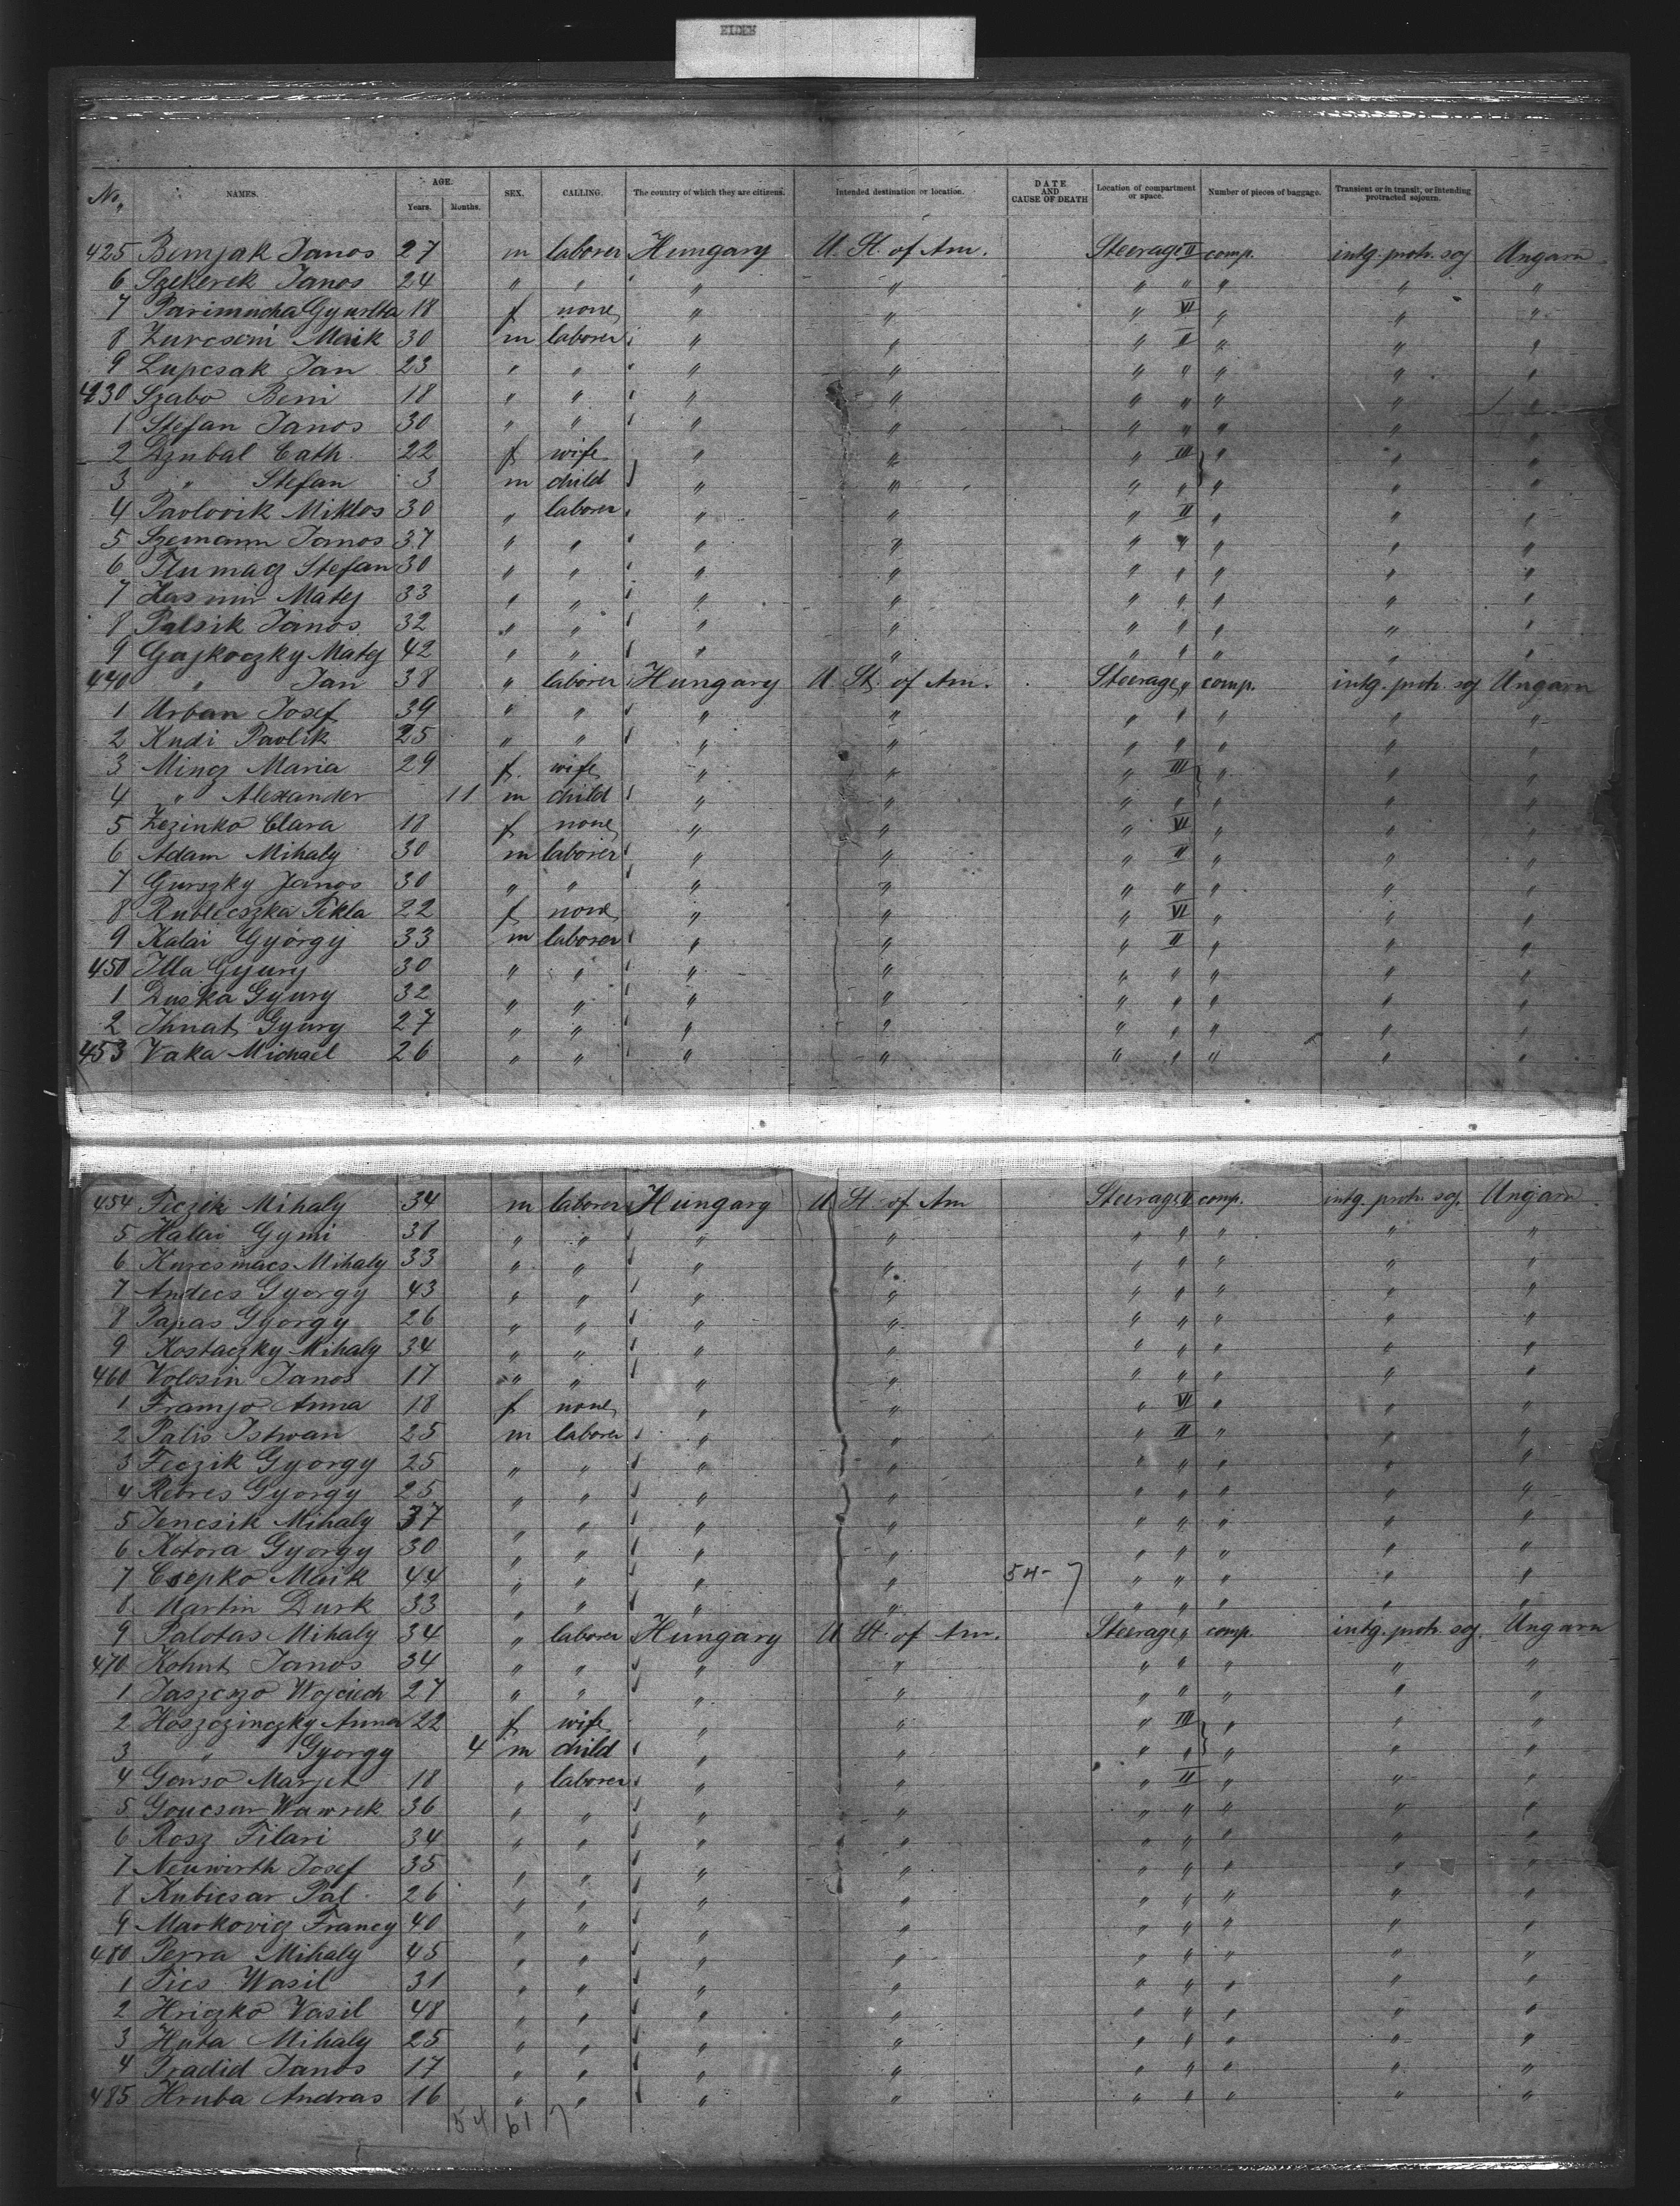 EIDER
No. NAMES. AGE. Years. Months. SEX. CALLING. The country of which they are citizens. Intended destination or location. DATE AND CAUSE OF DEATH Location of compartment or space. Number of pieces of baggage. Transient or in transit, or intending protracted sojourn.
425 Bemjak Janos 27 m laborer Hungary U. St. of Am. Steerage II comp. intg. protr. soj Ungarn
6 Szekerek Janos 24 " " " " " " " " "
7 Parimucha 18 f none " " " VI " " "
8 Zurcseni Maik 30 m laborer " " " II " " "
9 Lupcsak Jan 23 " " " " " " " " "
430 Szabo Beni 18 " " " " " " " " "
1 Stefan Janos 30 " " " " " " " " "
2 Dzubal Cath. 22 f wife " " " III " " "
3 " Stefan 3 m child " " " " " " "
4 Pavlovik Miklos 30 " laborer " " " II " " "
5 Szemann Janos 37 " " " " " " " " "
6 Tlumacz Stefan 30 " " " " " " " " "
7 Kasimir Matej 33 " " " " " " " " "
8 Palsik Janos 32 " " " " " " " " "
9 Gajkoczky Matej 42 " " " " " " " " "
440 " Jan 38 " laborer Hungary U. St. of Am. Steerage " comp. intg. protr. soj Ungarn
1 Urban Josef 39 " " " " " " " " "
2 Kudi Pavlik 25 " " " " " " " " "
3 Mincz Maria 29 f. wife " " " III " " "
4 " Alexander 11 m child " " " " " " "
5 Zezinko Clara 18 f none " " " VI " " "
6 Adam Mihaly 30 m laborer " " " II " " "
7 Gurszky Janos 30 " " " " " " " " "
8 Rubleczka Tekla 22 f none " " " VI " " "
9 Kalai György 33 m laborer " " " II " " "
450 Illa Gyury 30 " " " " " " " " "
1 Duska Gyury 32 " " " " " " " " "
2 Ihnat Gyury 27 " " " " " " " " "
453 Vaka Michael 26 " " " " " " " " "
454 Feczik Mihaly 34 m laborer Hungary U St. of Am Steerage II comp. intg. protr. soj. Ungarn
5 Halai 38 " " " " " " " " "
6 Kurcsmacs Mihaly 33 " " " " " " " " "
7 Andecs Gyorgy 43 " " " " " " " " "
8 Papas Gyorgy 26 " " " " " " " " "
9 Kostaczky Mihaly 34 " " " " " " " " "
460 Volosin Janos 17 " " " " " " " " "
1 Framjo Anna 18 f none " " " VI " " "
2 Palis Istwan 25 m laborer " " " II " " "
3 Feczik Gyorgy 25 " " " " " " " " "
4 Rebres Gyorgy 25 " " " " " " " " "
5 Jencsik Mihaly 37 " " " " " " " " "
6 Kotora Gyorgy 30 " " " " " " " " "
7 Csepko Maik 44 " " " " 54-7 " " " " "
8 Martin Durk 33 " " " " " " " " "
9 Palotas Mihaly 34 " laborer Hungary U St. of Am. Steerage " comp. intg. protr. soj. Ungarn
470 Kohut Janos 34 " " " " " " " " "
1 Jaszczo Wojciech 27 " " " " " " " " "
2 Hoszczinczky Anna 22 f wife " " " III " " "
3 " Gyorgy 4 m child " " " " " " "
4 Genso Marjet 18 " laborer " " " II " " "
5 Goucsar Wawrek 36 " " " " " " " " "
6 Rosz Filari 34 " " " " " " " " "
7 Neuwirth Josef 35 " " " " " " " " "
8 Kubicsar Pal 26 " " " " " " " " "
9 Markovicz Francy 40 " " " " " " " " "
480 Perra Mihaly 45 " " " " " " " " "
1 Fics Wasil 31 " " " " " " " " "
2 Hriczko Vasil 48 " " " " " " " " "
3 Huta Mihaly 25 " " " " " " " " "
4 Pradid Janos 17 " " " " " " " " "
485 Hruba Andras 16 " " " " " " " " "
54 61 7